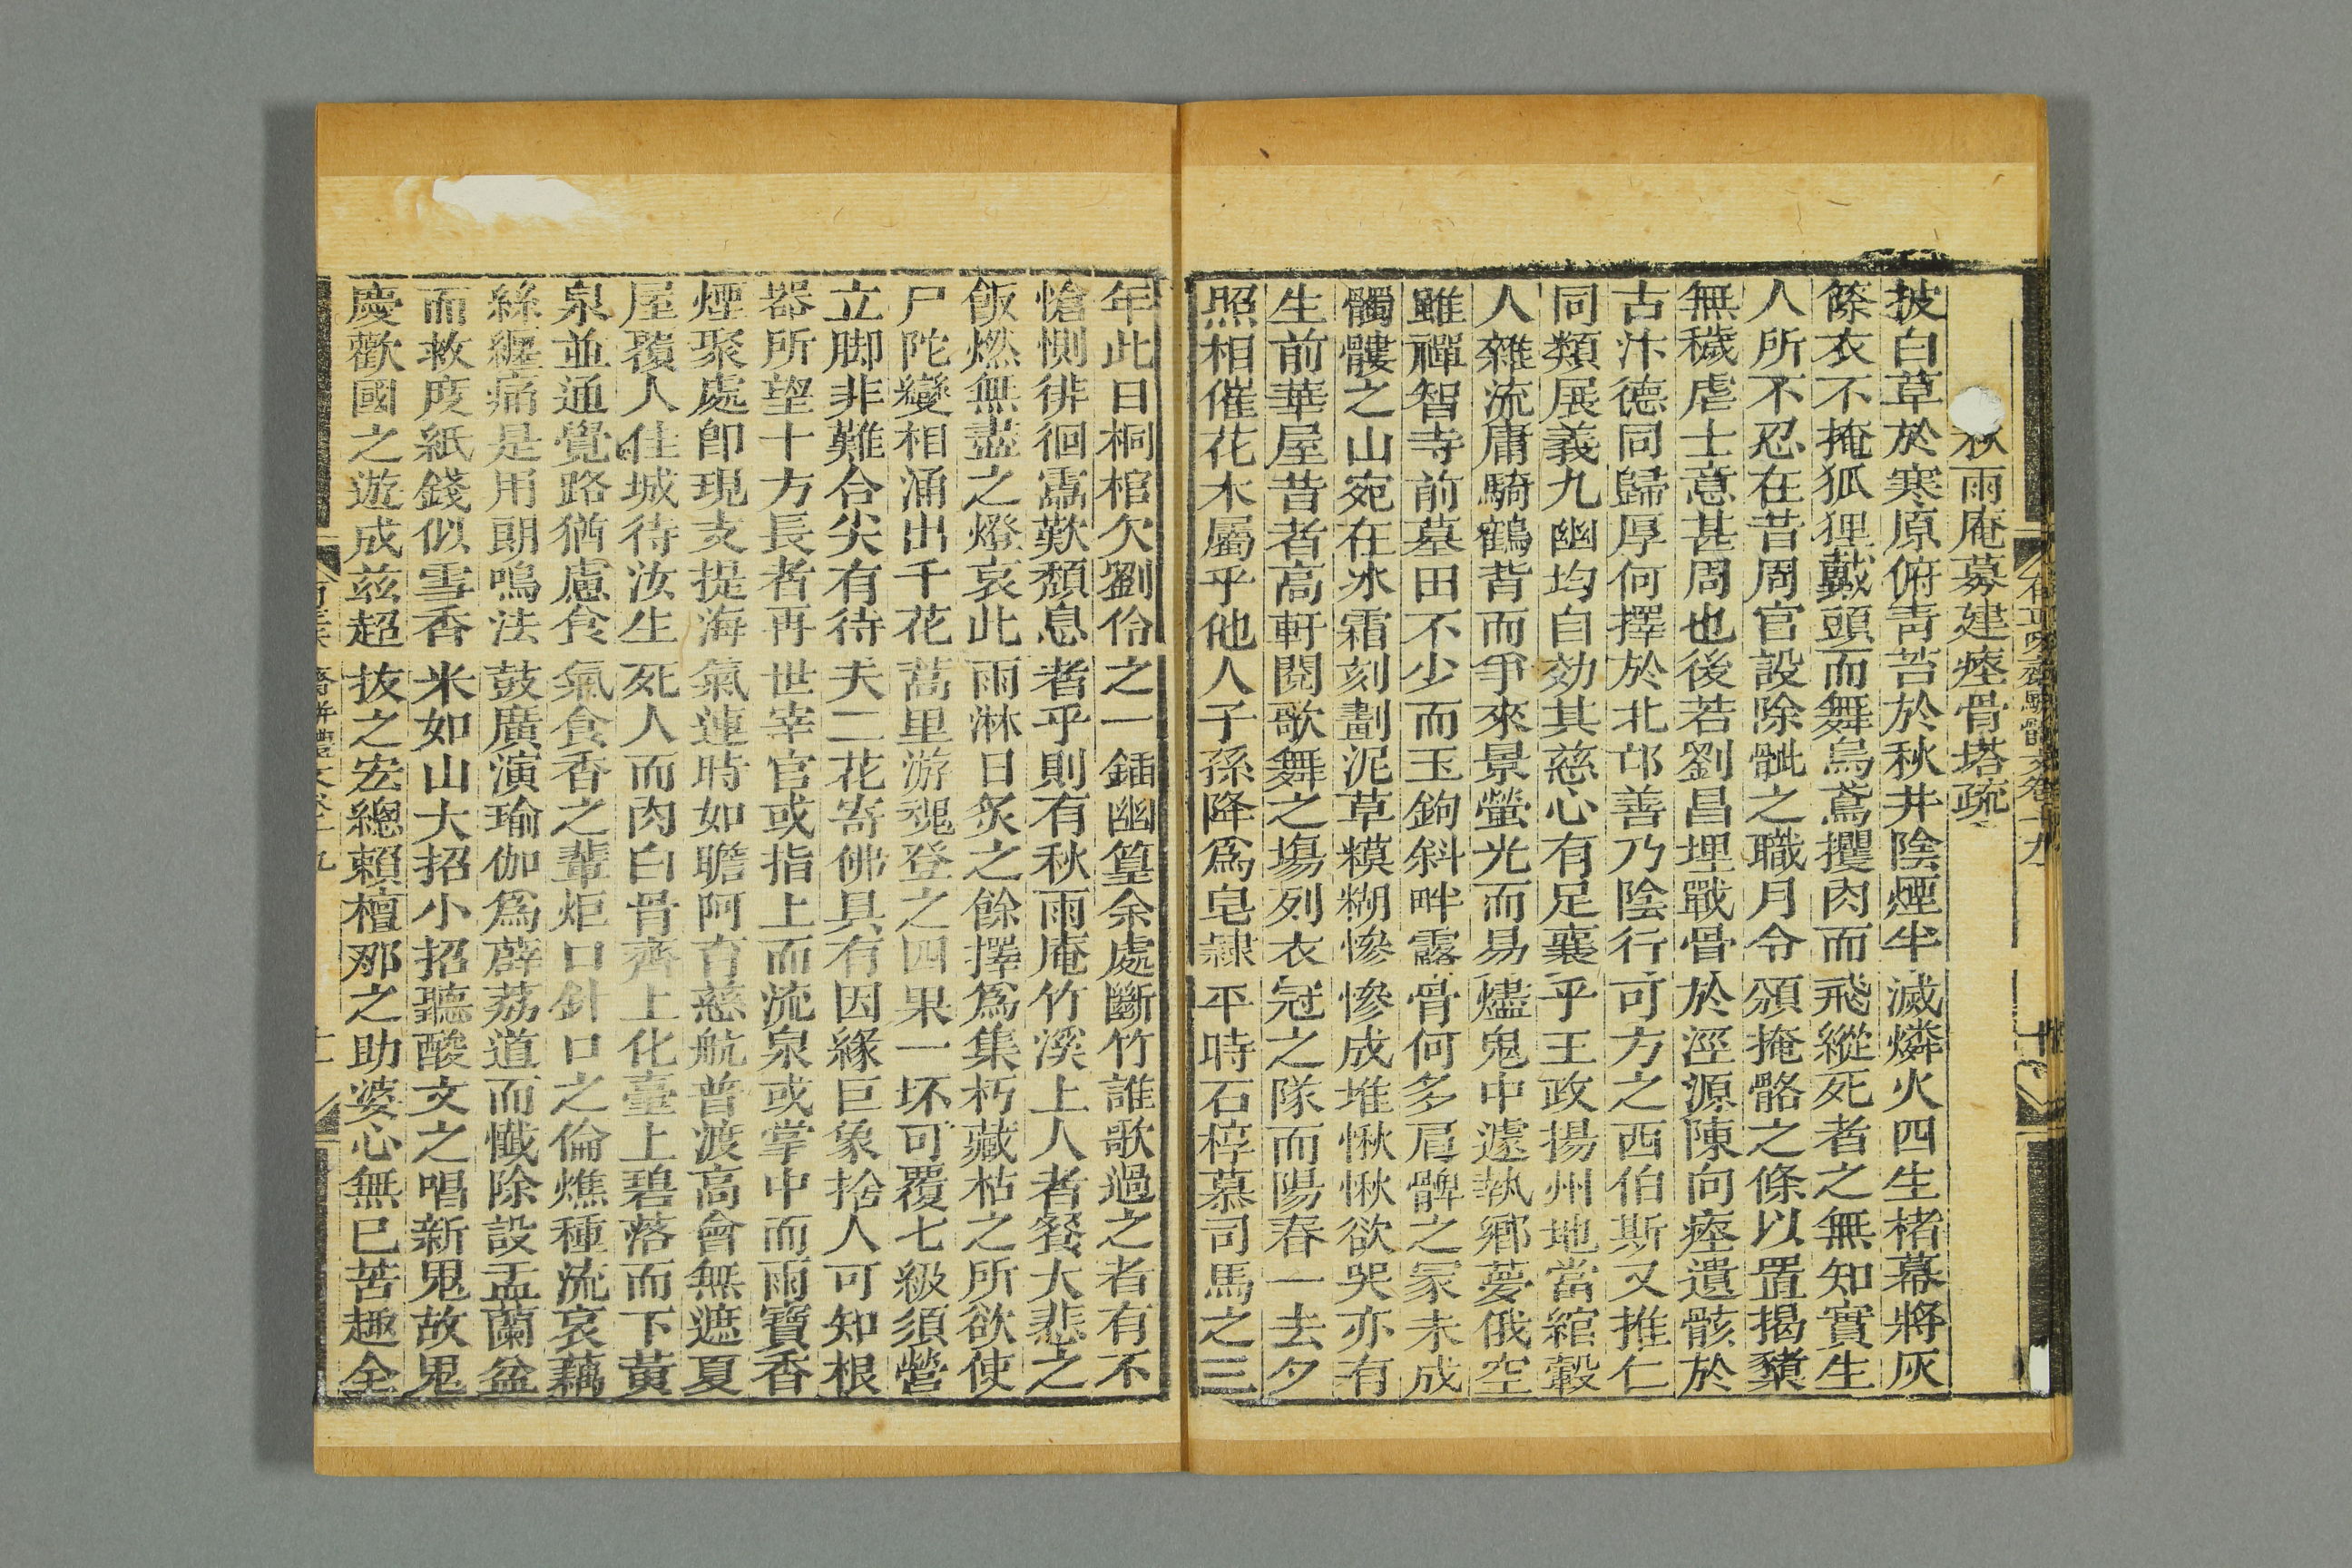 秋雨庵募建瘞骨塔疏
披白草於寒原俯青苔於秋井陰煙半滅燐火四生楮幕將灰
篠衣不掩狐狸戴頭而舞烏鳶攫肉而飛縱死者之無知實生
人所不忍在昔周官設除骴之職月令頒掩骼之條以置揭櫫
無穢虐士意甚周也後若劉昌埋戰骨於涇源陳向瘞遺骸於
古汴德同歸厚何擇於北邙善乃陰行可方之西伯斯又推仁
同類展義九幽均自効其慈心有足襄乎王政揚州地當綰轂
人雜流庸騎鶴背而爭來景螢光而易燼鬼中遽執鄉夢俄空
雖禪智寺前墓田不少而玉鉤斜畔露骨何多肩髀之冢未成
髑髏之山宛在冰霜刻劃泥草糢糊慘慘成堆愀愀欲哭亦有
生前華屋昔者高軒閱歌舞之場列衣冠之隊而陽春一去夕
照相催花木屬乎他人子孫降為皂隸平時石椁慕司馬之三
年此日桐棺欠劉伶之一鍤幽篁余處斷竹誰歌過之者有不
愴惻徘徊霑歎頹息者乎則有秋雨庵竹溪上人者餐大悲之
飯燃無盡之燈哀此雨淋日炙之餘擇為集朽藏枯之所欲使
尸陀變相涌出千花蒿里游魂登之四果一坏可覆七級須營
立脚非難合尖有待夫二花寄佛具有因緣巨象捨人可知根
器所望十方長者再世宰官或指上而流泉或掌中而雨寶香
煙聚處卽現支提海氣連時如瞻阿育慈航普渡高會無遮夏
屋覆人佳城待汝生死人而肉白骨齊上化臺上碧落而下黃
泉並通覺路猶慮食氣食香之輩炬口針口之倫燋種流哀藕
絲纏痛是用朗鳴法鼓廣演瑜伽為薜荔道而懺除設盂蘭盆
而救度紙錢似雪香米如山大招小招聽酸文之唱新鬼故鬼
慶歡國之遊成茲超拔之宏總賴檀那之助婆心無已苦趣全